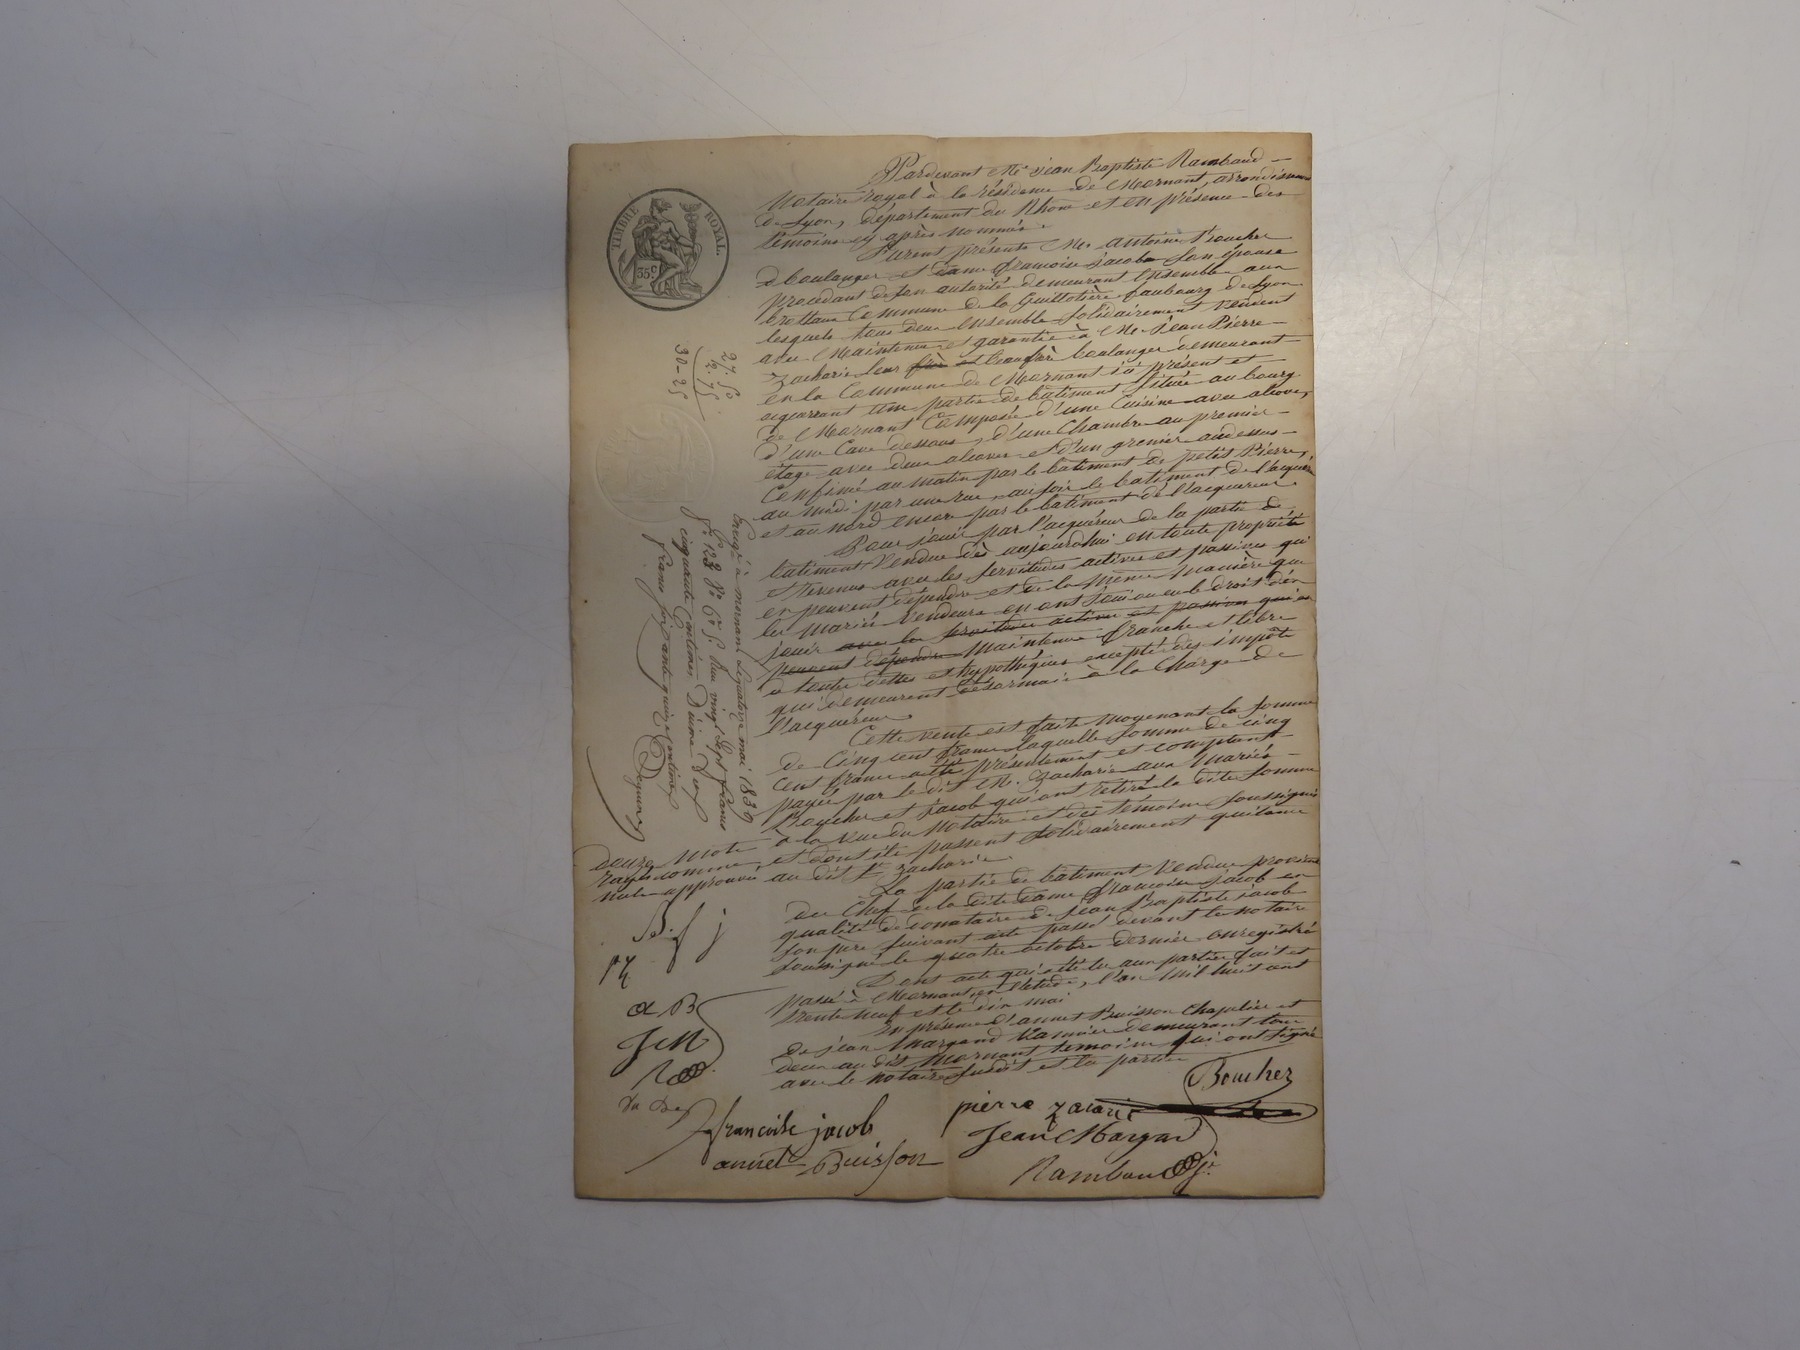 TIMBRE ROYAL.
35c
Pardevant Me Jean Baptiste Rambaud
Notaire royal à la résidence de Mornant, arrondissement
de Lyon, département du Rhône et en présence des
témoins cy après nommés.
Furent présents Mr. Antoine Boucher
boulanger et dame françoise jacob son épouse
procédant de son autorité demeurant ensemble aux
brottaux Commune de la Guillotière faubourg de Lyon
lesquels tous deux ensemble solidairement vendent
avec Maintenue et garantie à Mr. Jean Pierre
Zacharie leur frère et beaufrère boulanger demeurant
en la Commune de Mornant ici présent et
acquerrant une partie de bâtiment située au bourg
de Mornant Composée d'une Cuisine avec alcove,
d'une Cave dessous, d'une Chambre au premier
étage avec deux alcoves et d'un grenier audessus
Confiné au matin par le batiment de petit Pierre,
au midi par une rue, au soir le batiment de l'acquéreur
et au nord encore par le batiment de l'acquéreur.
Pour jouir par l'acquéreur de la partie de
batiment Vendue dès aujourd'hui en toute propriété
avec les servitudes actives et passives qui
en peuvent dépendre et de la Même Manière que
les mariés Vendeurs en ont joui ou eu le droit d'en
jouir avec les servitudes actives et passives qui en
peuvent dépendre Maintenue franche et libre
de toutes dettes et hypothèques excepté des impôts
qui demeurent désormais à la Charge de
l'acquéreur
Cette vente est faite moyenant la somme
de Cinq cent francs laquelle somme de cinq
cent francs a été présentement et comptant
payée par le dit Mr. Zacharie aux Mariés
Boucher et Jacob qui ont retiré la dite somme
à la vue du Notaire et des témoins soussignés
et dont ils passent solidairement quitance
au dit Sr. Zacharie.
La partie de batiment Vendue provient
du Chef de la dite dame françoise jacob en
qualité de donataire de Jean Baptiste jacob
son père suivant acte passé devant le notaire
soussigné le quatre octobre dernier enregistré
Dont acte qui a été lu aux parties fait et
passé à Mornant, en l'étude, l'an Mil huit cent
trente neuf et le dix mai
En présence d'annet Buisson Chapelier et
de jean Margand Vannier demeurant tous
deux au dit Mornant témoins qui ont signé
avec le notaire susdit et les parties
27. 50
2. 75
30-25
Enregé à mornant le quatorze mai 1839
fo 123 Ro C 6 5. Reçu vingt sept francs
cinquante Centimes Décime deux
francs soixante quinze Centimes
douze mots
rayés comme
nuls approuvés
B. f j
P Z
a B
J M
R
Boucher
francoise jacob
pierre zacarie
annet Buisson
Jean Margan
Rambaud